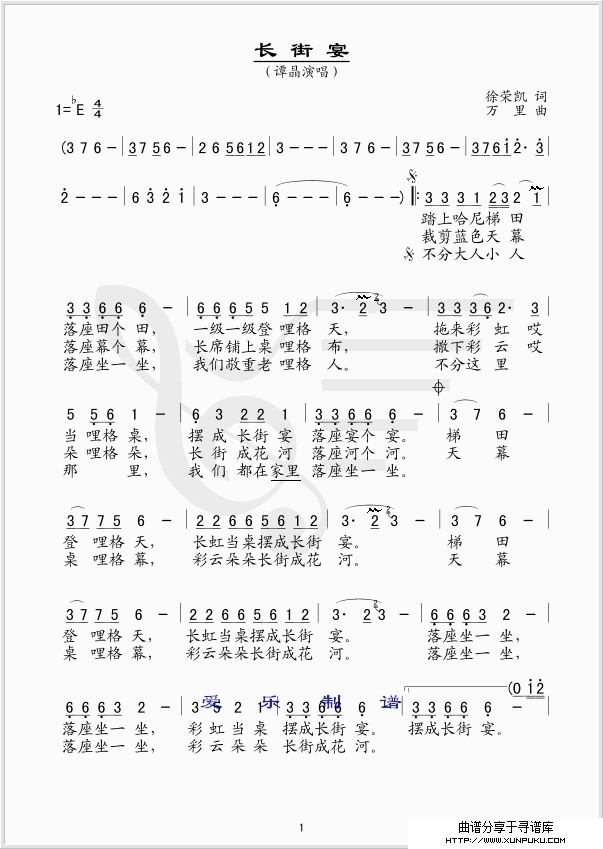 长 街 宴
(谭晶演唱)
1=♭E 4/4
徐荣凯 词
万 里 曲
(3 7 6 - | 3 7 5 6 - | 2 6 5612 | 3 - - - | 3 7 6 - | 3 7 5 6 - | 3 7 6 1 2· 3 |
2 - - - | 6 3 2 1 | 3 - - - | 6 - - - | 6 - - -) ‖: 3 3 3 1 2 3 2 1
踏上哈尼梯 田
裁剪蓝色天 幕
不分大人小 人
3 3 6 6 6 - | 6 6 6 5 5 1 2 | 3· 2 3 - | 3 3 3 6 2· 3
落座田个 田, 一级一级登 哩格 天, 拖来彩 虹 哎
落座幕个 幕, 长席铺上桌 哩格 布, 撒下彩 云 哎
落座坐一 坐, 我们敬重老 哩格 人。 不分这 里
5 5 6 1 - | 6 3 2 2 1 | 3 3 6 6 6 - | 3 7 6 -
当 哩格 桌, 摆 成 长街 宴 落座宴个 宴。 梯 田
朵 哩格 朵, 长 街 成花 河 落座河个 河。 天 幕
那 里, 我 们 都在家里 落座坐一 坐。
3 7 7 5 6 - | 2 2 6 6 5 6 1 2 | 3· 2 3 - | 3 7 6 -
登 哩格 天, 长虹当桌摆成长街 宴。 梯 田
桌 哩格 幕, 彩云朵朵长街成花 河。 天 幕
3 7 7 5 6 - | 2 2 6 6 5 6 1 2 | 3· 2 | 6 6 6 3 2 -
登 哩格 天, 长虹当桌摆成长街 宴。 落座坐一 坐,
桌 哩格 幕, 彩云朵朵长街成花 河。 落座坐一 坐,
爱 乐 制 谱
(0 1 2
6 6 6 3 2 - | 3 5 2 1 | 3 3 6 6 6 - | 3 3 6 6 6 -
落座坐一 坐, 彩 虹 当 桌 摆成长街 宴。 摆成长街 宴。
落座坐一 坐, 彩 云 朵 朵 长街成花 河。
1
曲谱分享于寻谱库
WWW.XUNPUKU.COM